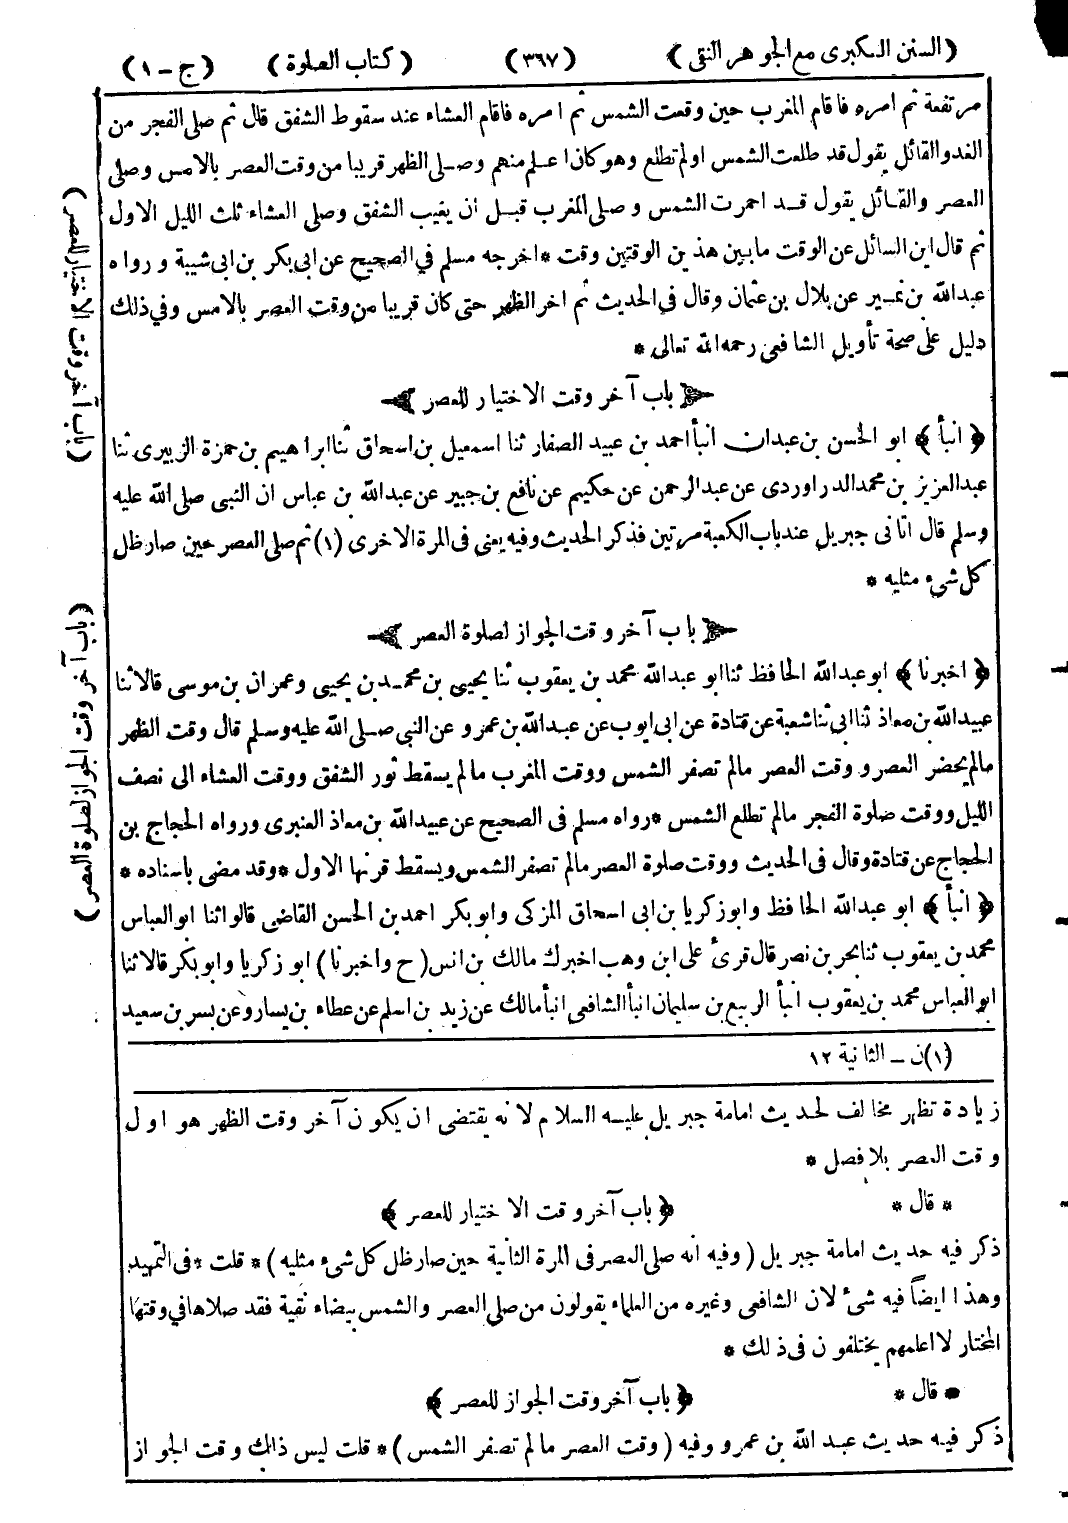 (السنن الكبرى مع الجوهر النقى) (٣٦٧) (كتاب الصلوة) (ج - ١)
مرتفعة ثم امره فاقام المغرب حين وقعت الشمس ثم امره فاقام العشاء عند سقوط الشفق قال ثم صلى الفجر من
الغد والقائل يقول قد طلعت الشمس اولم تطلع وهو كان اعلم منهم وصلى الظهر قريبا من وقت العصر بالامس وصلى
العصر والقائل يقول قد احمرت الشمس وصلى المغرب قبل ان يغيب الشفق وصلى العشاء ثلث الليل الاول
ثم قال اين السائل عن الوقت مابين هذين الوقتين وقت * اخرجه مسلم في الصحيح عن ابى بكر بن ابى شيبة ورواه
عبدالله بن نمير عن بلال بن عثمان وقال فى الحديث ثم اخر الظهر حتى كان قريبا من وقت العصر بالامس وفي ذلك
دليل على صحة تأويل الشافعى رحمه الله تعالى *
باب آخر وقت الاختيار للعصر
﴿ انبأ ﴾ ابو الحسن بن عبدان انبأ احمد بن عبيد الصفار ثنا اسمعيل بن اسحاق ثنا ابراهيم بن حمزة الزبيرى ثنا
عبدالعزيز بن محمد الدراوردى عن عبدالرحمن عن حكيم عن نافع بن جبير عن عبدالله بن عباس ان النبى صلى الله عليه
وسلم قال اتانى جبريل عند باب الكعبة مرتين فذكر الحديث وفيه يعنى فى المرة الاخرى (١) ثم صلى العصر حين صار ظل
كل شىء مثليه *
باب آخر وقت الجواز لصلوة العصر
﴿ اخبرنا ﴾ ابو عبدالله الحافظ ثنا ابو عبدالله محمد بن يعقوب ثنا يحيى بن محمد بن يحيى وعمران بن موسى قالا ثنا
عبيدالله بن معاذ ثنا ابى ثنا شعبة عن قتادة عن ابى ايوب عن عبدالله بن عمرو عن النبى صلى الله عليه وسلم قال وقت الظهر
مالم يحضر العصر و وقت العصر مالم تصفر الشمس ووقت المغرب مالم يسقط ثور الشفق ووقت العشاء الى نصف
الليل ووقت صلوة الفجر مالم تطلع الشمس * رواه مسلم فى الصحيح عن عبيدالله بن معاذ العنبرى ورواه الحجاج بن
الحجاج عن قتادة وقال فى الحديث ووقت صلوة العصر مالم تصفر الشمس ويسقط قرنها الاول * وقد مضى باسناده *
﴿ انبأ ﴾ ابو عبدالله الحافظ وابو زكريا بن ابى اسحاق المزكى وابو بكر احمد بن الحسن القاضى قالوا ثنا ابو العباس
محمد بن يعقوب ثنا بحر بن نصر قال قرئ على ابن وهب اخبرك مالك بن انس (ح واخبرنا) ابو زكريا وابو بكر قالا ثنا
ابو العباس محمد بن يعقوب انبأ الربيع بن سليمان انبأ الشافعى انبأ مالك عن زيد بن اسلم عن عطاء بن يسار وعن بسر بن سعيد
(١) ن - الثانية ١٢
زيادة تظهر مخالف لحديث امامة جبريل عليه السلام لانه يقتضى ان يكون آخر وقت الظهر هو اول
وقت العصر بلا فصل *
* قال * ﴿ باب آخر وقت الاختيار للعصر ﴾
ذكر فيه حديث امامة جبريل (وفيه انه صلى العصر فى المرة الثانية حين صار ظل كل شىء مثليه) * قلت * فى التمهيد
وهذا ايضاً فيه شىء لان الشافعى وغيره من العلماء يقولون من صلى العصر والشمس بيضاء نقية فقد صلاها في وقتها
المختار لا اعلمهم يختلفون فى ذلك *
* قال * ﴿ باب آخر وقت الجواز للعصر ﴾
ذكر فيه حديث عبد الله بن عمرو وفيه (وقت العصر مالم تصفر الشمس) * قلت ليس ذلك وقت الجواز
(باب آخر وقت الاختيار للعصر)
(باب آخر وقت الجواز لصلوة العصر)